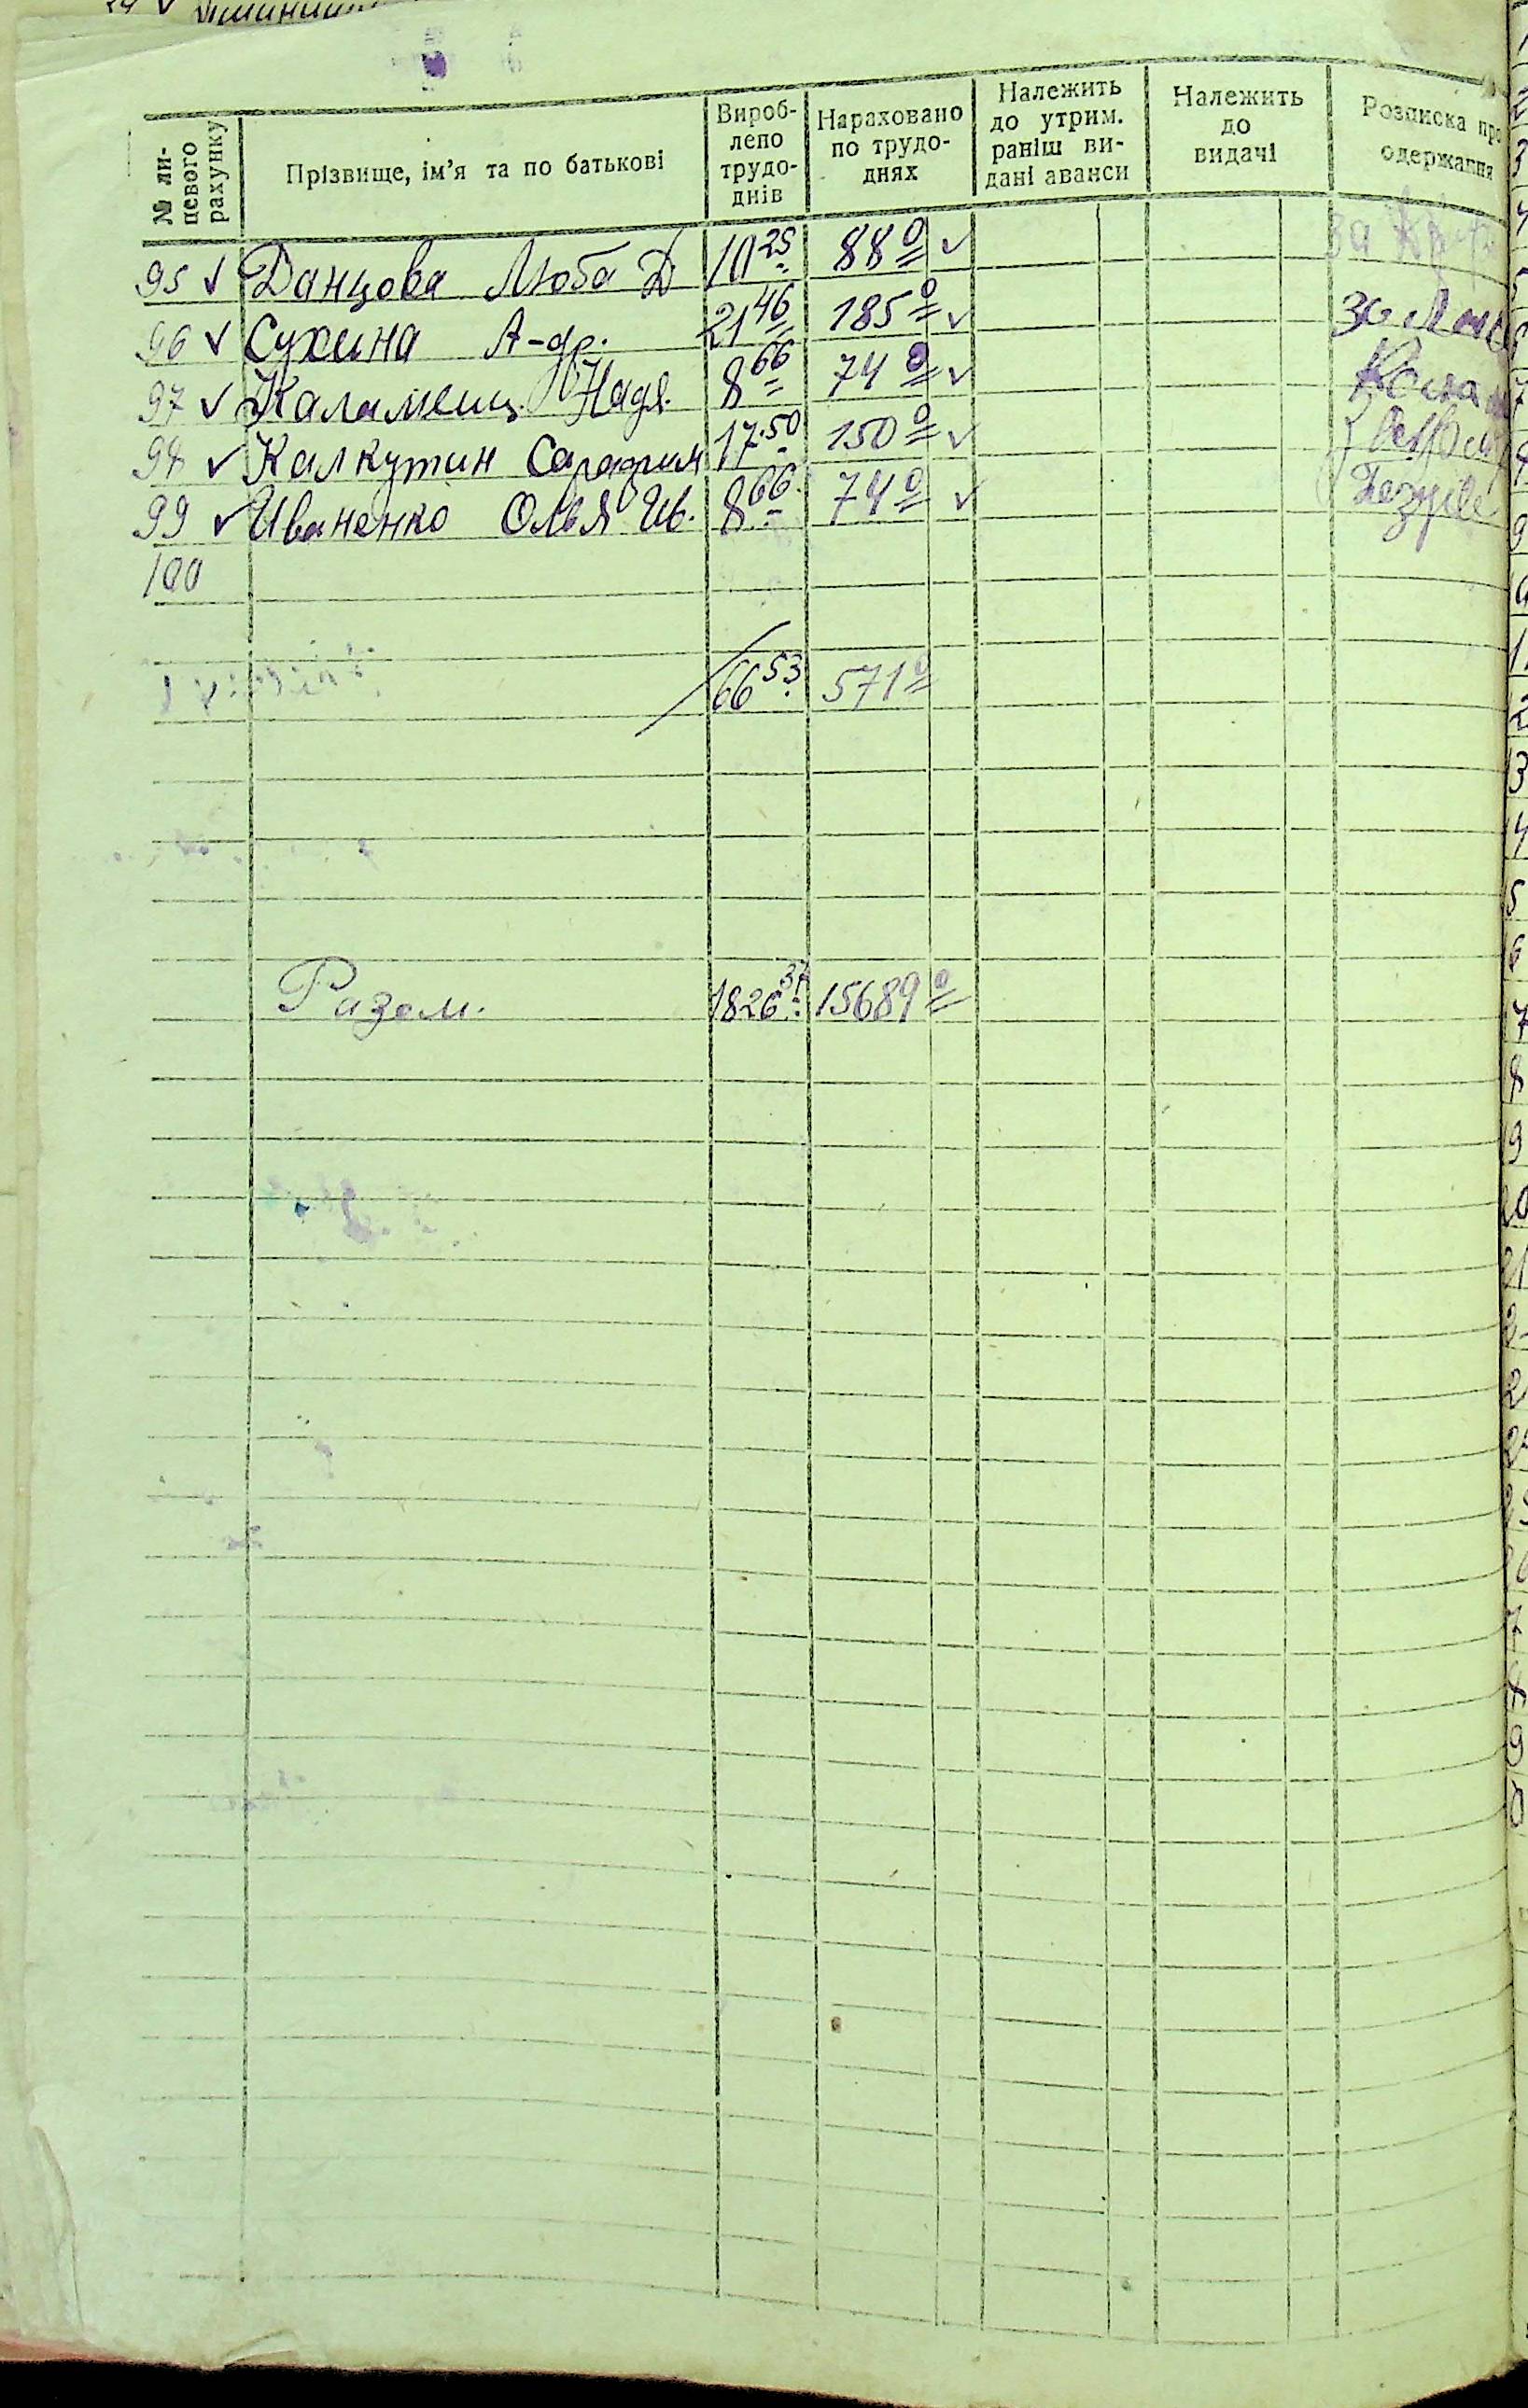 № ли-
цевого
рахунку
Прізвище, ім'я та по батькові
Вироб-
лено
трудо-
днів
Нараховано
по трудо-
днях
Належить
до утрим.
раніш ви-
дані аванси
Належить
до
видачі
Розписка про
одержання
95 ✓ Данцова Люба Д 10 25 88 0 ✓
96 ✓ Сухина А-др. 21 46 185 0 ✓
97 ✓ Надя. 8 66 74 0 ✓
98 ✓ Калкутин 17.50 150 0 ✓
99 ✓ Иваненко Олья Ив. 8 66 74 0 ✓
100
66 53 571 0
Разом. 1826 37 15689 0